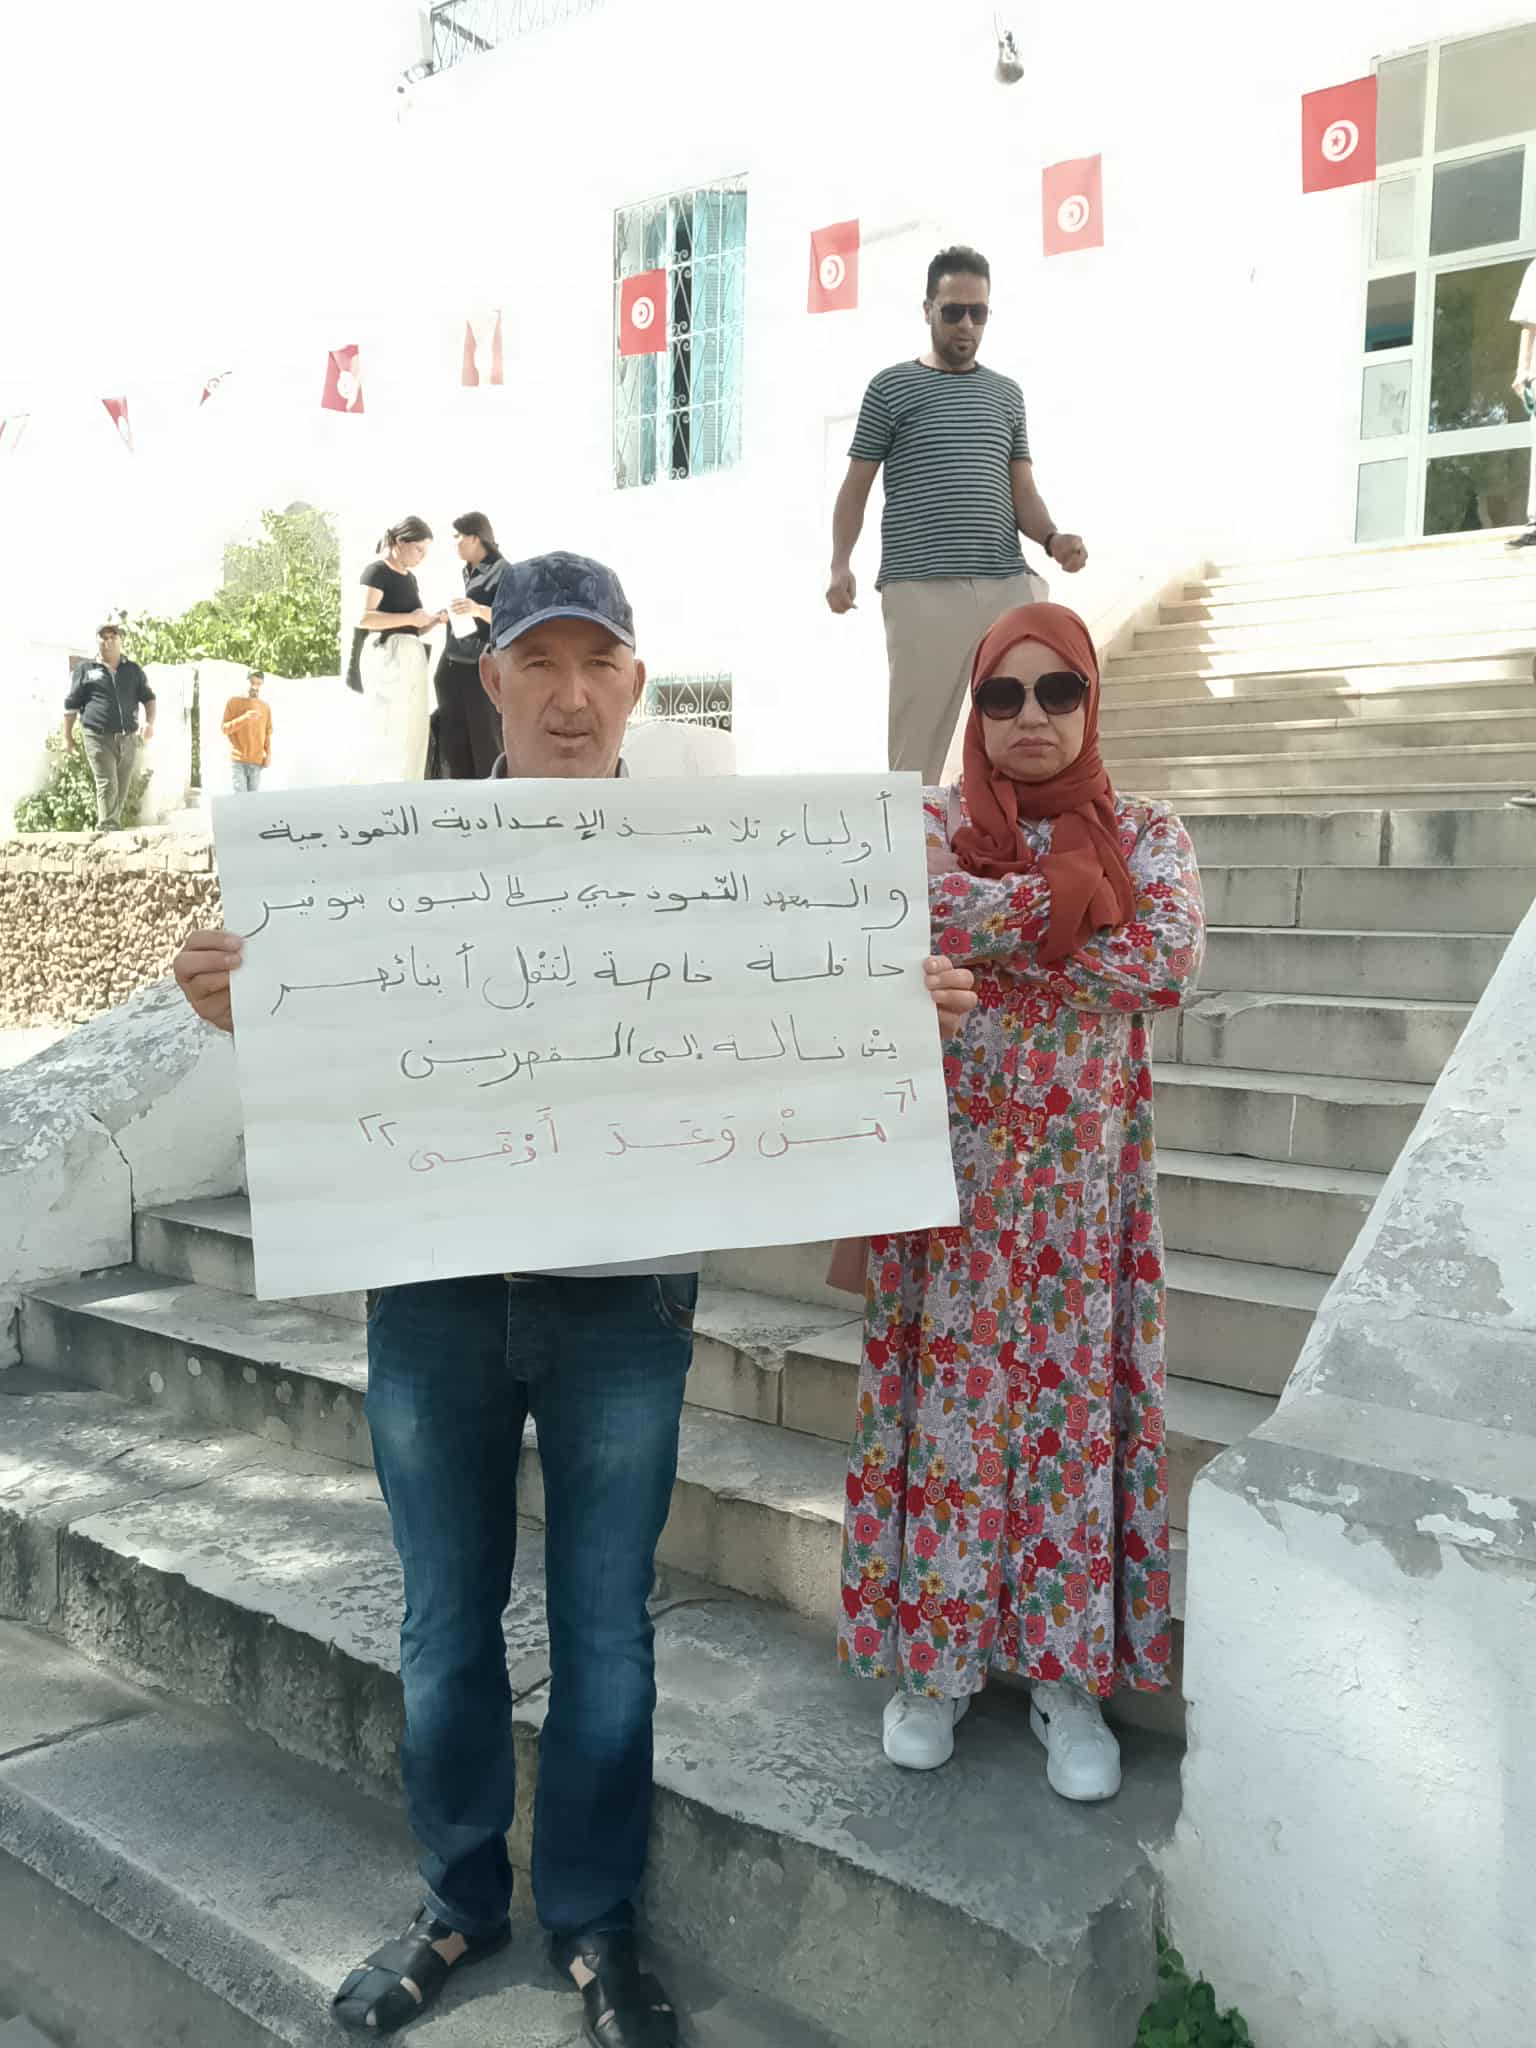 أولياء تلاميذ الإعدادية النّموذجية
والمعهد النّموذجي يطالبون بتوفير
حافلة خاصة لِنَقْلِ أبنائهم
مِنْ تالة إلى القصرين
"مَنْ وَعَدَ أَوْفَى"